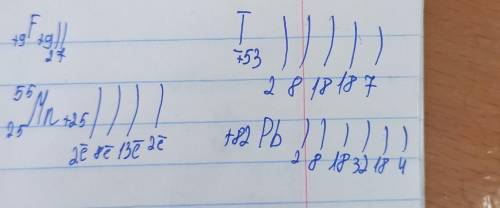 +9 F +9 )) 2 7
I +53 ) ) ) ) ) 2 8 18 18 7
55 25 Mn +25 ) ) ) ) 2ē 8ē 13ē 2ē
+82 Pb ) ) ) ) ) ) 2 8 18 32 18 4